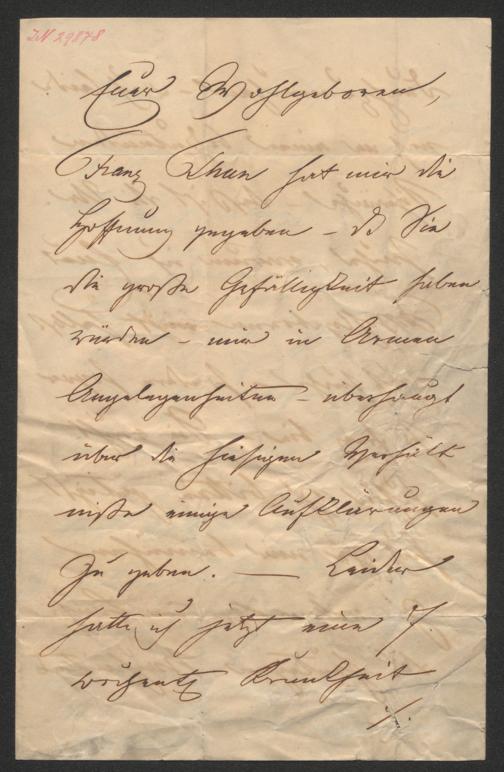 IN 29878
Euer Wohlgeboren,
Franz Thun hat mir die
Hoffnung gegeben – dß Sie
die große Gefälligkeit haben
würden – mir in Armen
Angelegenheiten – überhaupt
über die hiesigen Verhält
niße einige Aufklärungen
zu geben. — Leider
hatte ich jetzt eine 7
wöchentl Krankheit
./.